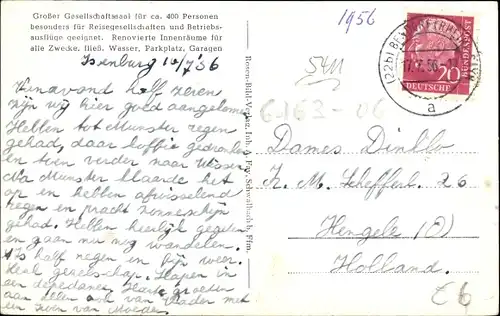 Großer Gesellschaftssaal für ca. 400 Personen
besonders für Reisegesellschaften und Betriebs-
ausflüge geeignet. Renovierte Innenräume für
alle Zwecke. fließ. Wasser, Parkplatz, Garagen
Isenburg 16/7 '56
Vanavond half zeven
zijn wij hier goed aangekomen
Hebben tot Munster regen
gehad, daar koffie gedronken
en toen verder naar Wissen.
Na Munster klaarde het
op en hebben afwisselend
regen en pracht zonneschijn
gehad. Hebben heerlijk gegeten
en gaan nu nog wandelen.
't Is half negen en fijn weer.
Ideal gezelschap. Slapen in
een dependance. Harte groeten
aan allen ook van Vader met
een zoen van Moeder.
1956
5411
6163-06
(22b)
17.7.56
a
20
DEUTSCHE
BUNDESPOST
Dames Dinklo
K. M. Scheffersstr. 26
Hengelo (O)
Holland.
€6